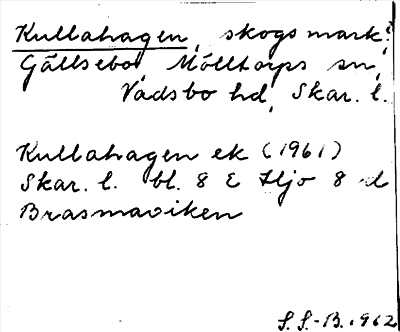 Kullahagen, skogsmark?
Gällsebo, Mölltorps sn,
Vadsbo hd, Skar. l.
Kullahagen ek (1961)
Skar. l. bl. 8 E Hjo 8 d
Brasmaviken
S. S.-B. 1962